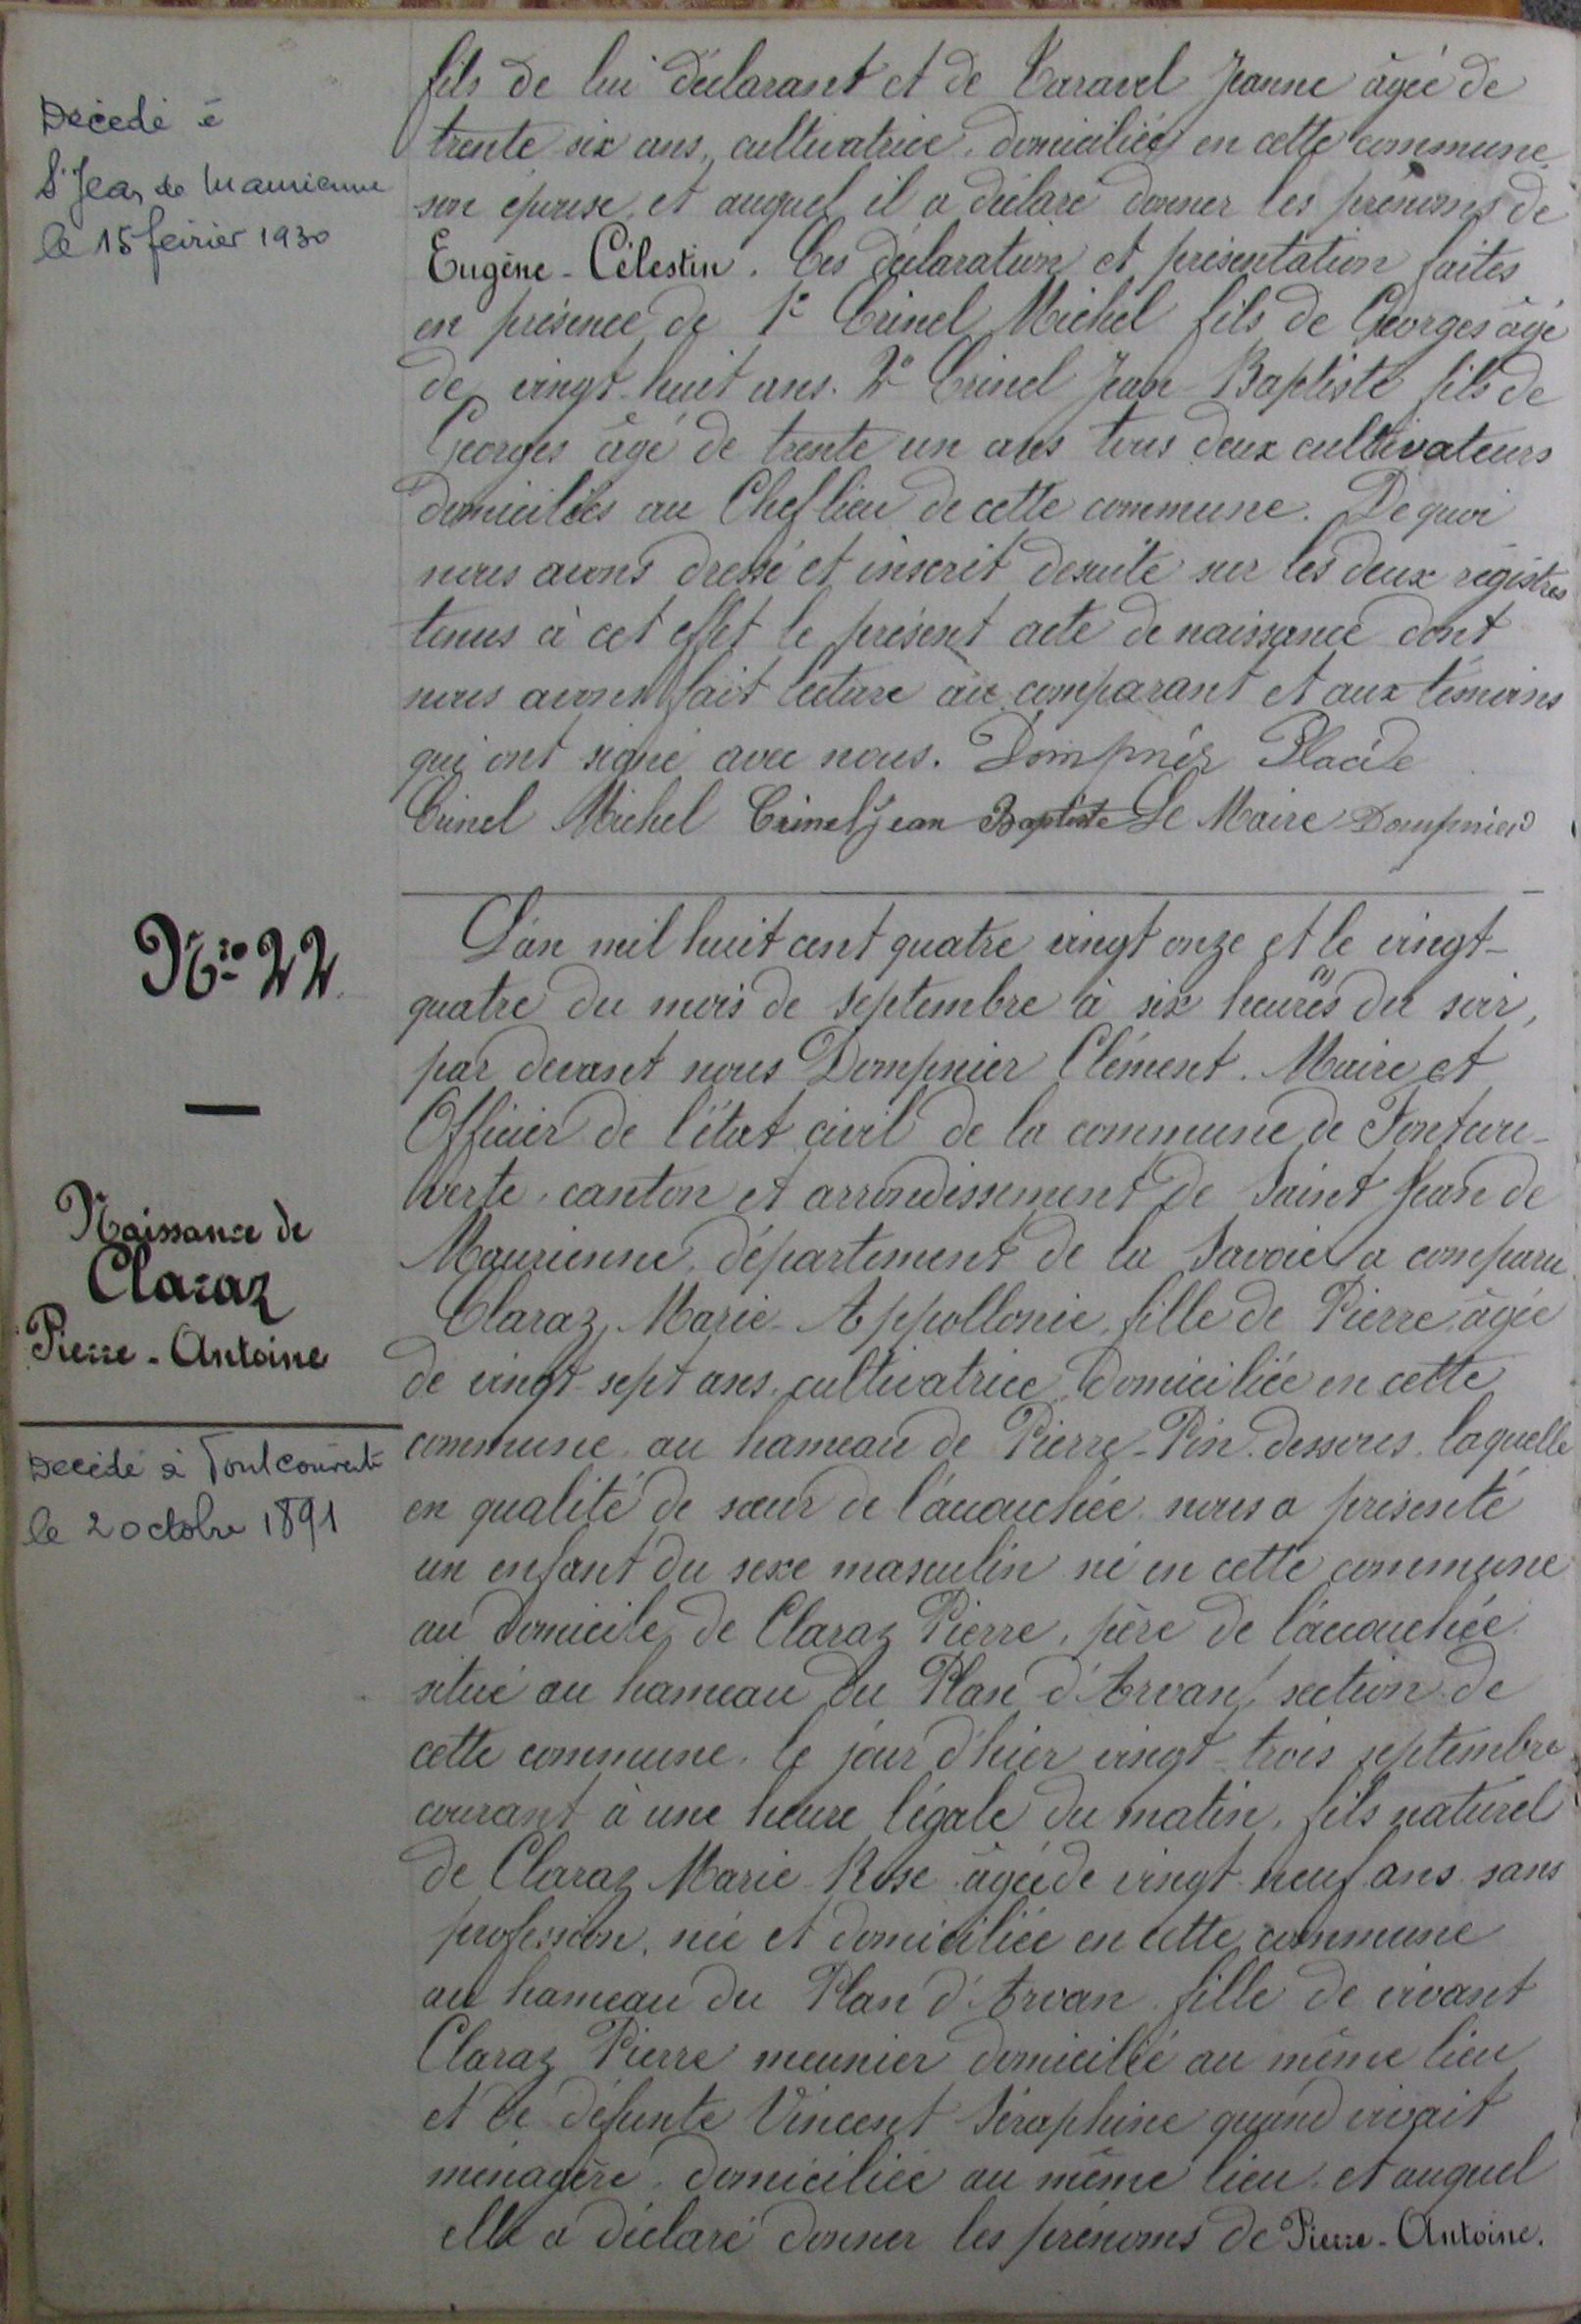 Décédé à
St Jean de Maurienne
le 15 février 1930
fils de lui déclarant et de Taravel Jeanne âgée de
trente six ans, cultivatrice, domiciliée en cette commune
son épouse, et auquel il a déclaré donner les prénoms de
Eugène-Célestin. Ces déclaration et présentation faites
en présence de 1° Crinel Michel fils de Georges âgé
de vingt-huit ans. 2° Crinel Jean-Baptiste fils de
Georges âgé de trente un ans tous deux cultivateurs
domiciliés au Chef lieu de cette commune. De quoi
nous avons dressé et inscrit desuite sur les deux régistres
tenus à cet effet le présent acte de naissance dont
nous avons fait lecture au comparant et aux témoins
qui ont signé avec nous. Dompnier Placide
Crinel Michel Crinel Jean Baptiste Le Maire Dompnier
N° 22
Naissance de
Claraz
Pierre-Antoine
Décédé à Fontcouverte
le 2 octobre 1891
L'an mil huit cent quatre vingt onze et le vingt-
quatre du mois de septembre à six heures du soir,
par devant nous Dompnier Clément. Maire et
Officier de l'état civil de la commune de Fontcou-
verte, canton et arrondissement de Saint Jean de
Maurienne, département de la Savoie, a comparu
Claraz Marie-Appollonie, fille de Pierre, âgée
de vingt-sept ans, cultivatrice, domiciliée en cette
commune au hameau de Pierre-Pin dessous, laquelle
en qualité de sœur de l'accouchée nous a présenté
un enfant du sexe masculin né en cette commune
au domicile de Claraz Pierre, père de l'accouchée
situé au hameau du Plan d'Arvan, section de
cette commune, le jour d'hier vingt-trois septembre
courant à une heure légale du matin, fils naturel
de Claraz Marie-Rose âgée de vingt-neuf ans sans
profession, née et domiciliée en cette commune
au hameau du Plan d'Arvan, fille de vivant
Claraz Pierre meunier domicilié au même lieu
et de défunte Vincent Séraphine quand vivait
ménagère, domiciliée au même lieu, et auquel
elle a déclaré donner les prénoms de Pierre-Antoine.